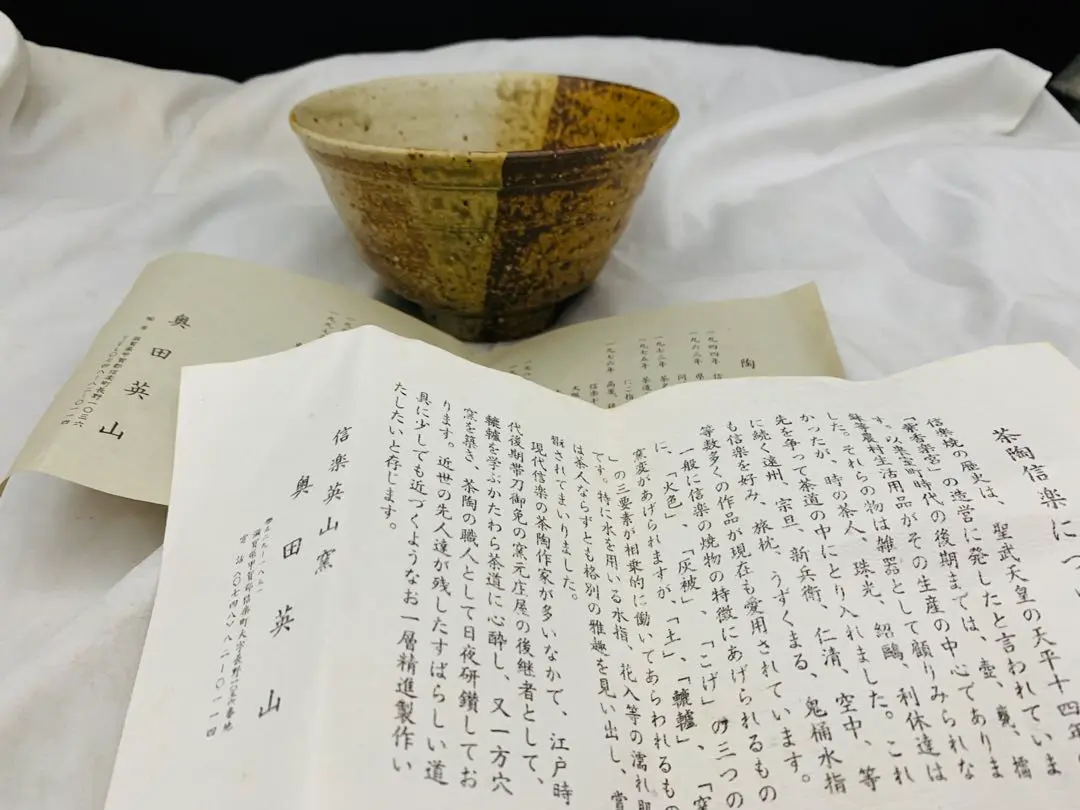 茶陶信楽につ
信楽焼の歴史は、聖武天皇の天平十四年の
「紫香楽宮」の造営に発したと言われていま
す。以来室町時代の後期までは、壺、甕、擂
鉢等農村生活用品がその生産の中心でありま
した。それらの物は雑器として顧りみられな
かったが、時の茶人、珠光、紹鷗、利休達は
先を争って茶道の中にとり入れました。これ
に続く遠州、宗旦、新兵衛、仁清、空中、等
も信楽を好み、旅枕、うずくまる、鬼桶水指
等数多くの作品が現在も愛用されています。
一般に信楽の焼物の特徴にあげられるもの
に、「火色」、「灰被」、「こげ」の三つの
窯変があげられますが、「土」、「轆轤」、「窯
」の三要素が相乗的に働いてあらわれるもの
です。特に水を用いる水指、花入等の濡れ肌
は茶人ならずとも格別の雅趣を見い出し、賞
翫されてまいりました。
現代信楽の茶陶作家が多いなかで、江戸時
代後期帯刀御免の窯元庄屋の後継者として、
轆轤を学ぶかたわら茶道に心酔し、又一方穴
窯を築き、茶陶の職人として日夜研鑽してお
ります。近世の先人達が残したすばらしい道
具に少しでも近づくようなお一層精進製作い
たしたいと存じます。
信楽英山窯
奥田英山
滋賀県甲賀郡信楽町大字長野
電話〇七四八八二ー〇一一四
陶
一九四四年 信
一九六三年 県
一九七三年 茶
一九七五年 茶道
一九七六年 高
奥田英山
滋賀県甲賀郡信楽町長野一〇三六